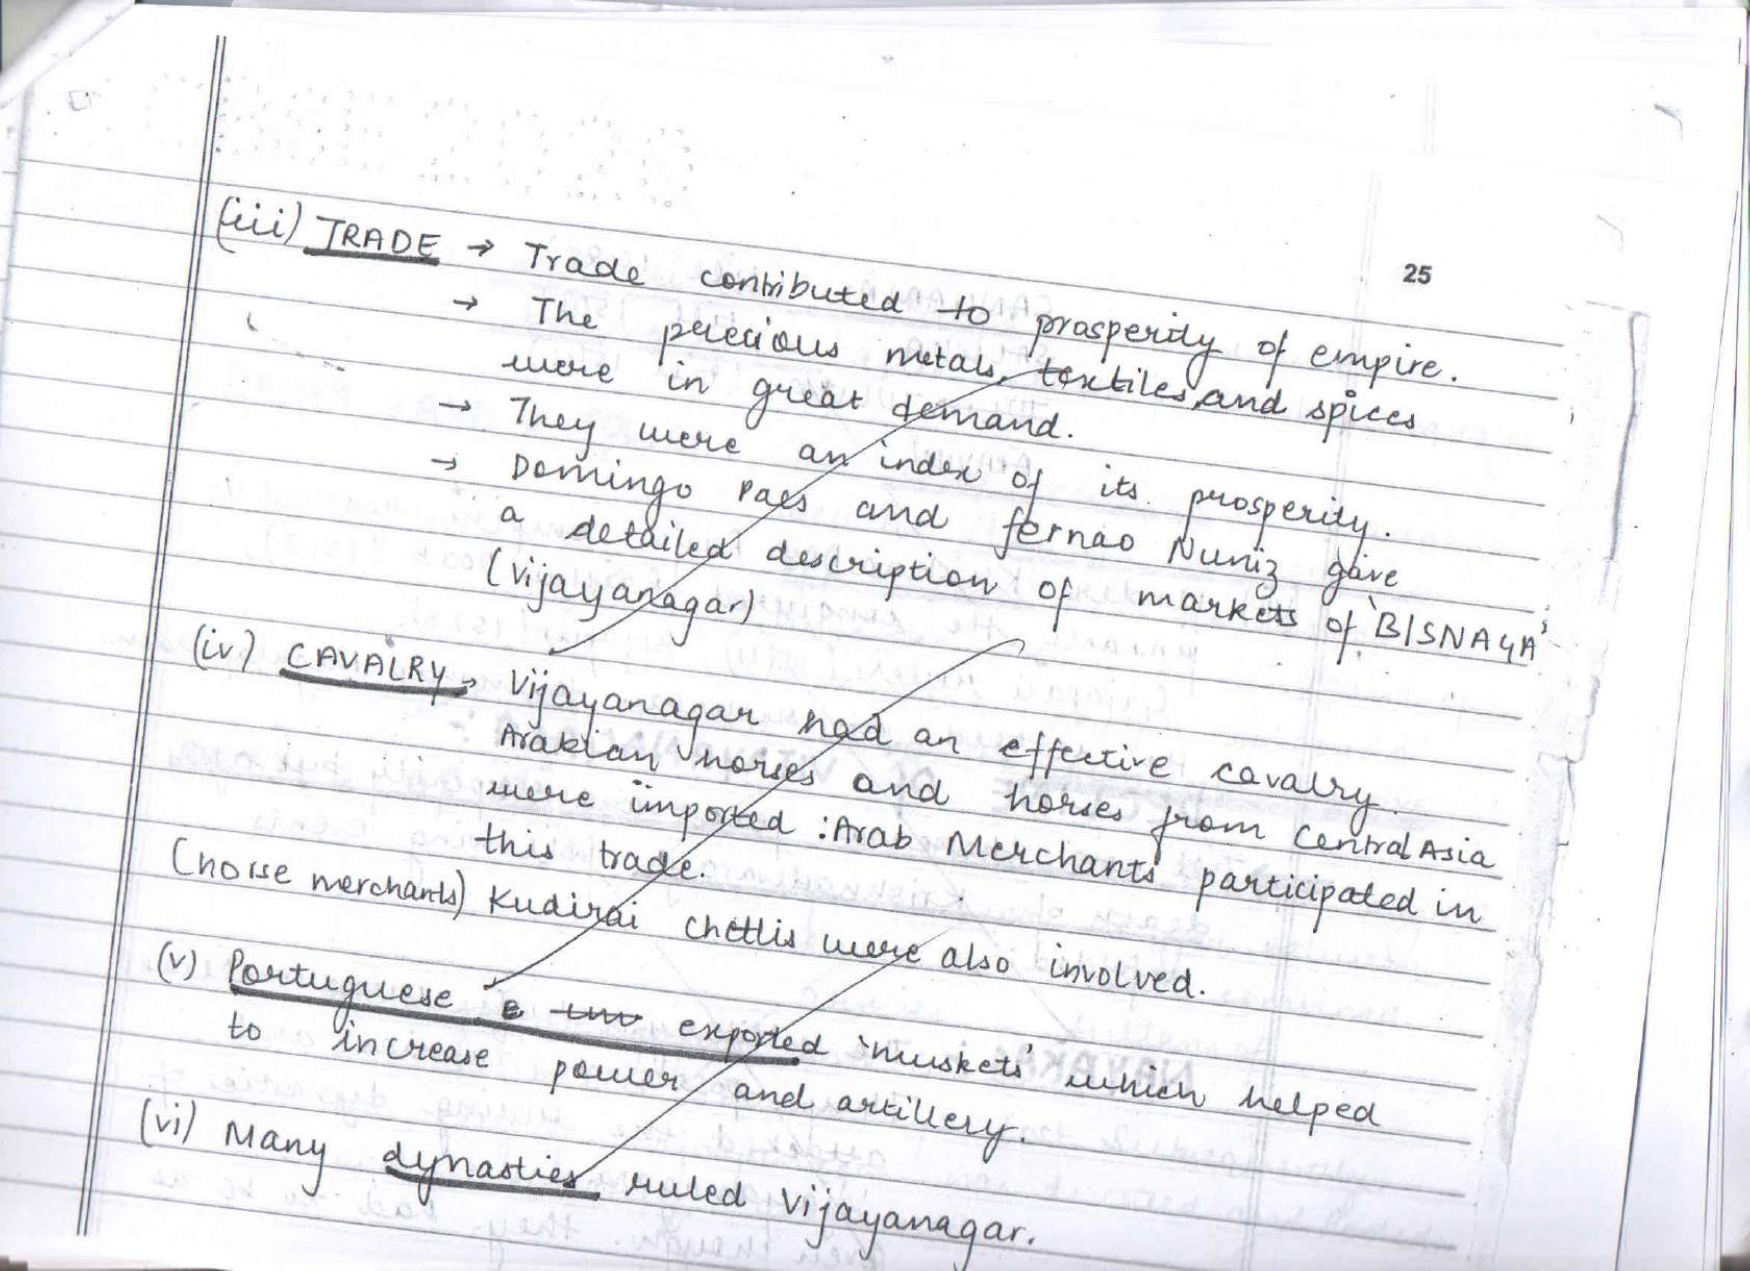 25
(iii) TRADE → Trade contributed to prosperity of empire.
→ The precious metals, textiles, and spices
were in great demand.
→ They were an index of its prosperity.
→ Domingo Paes and fernao Nuniz gave
a detailed description of markets of 'BISNAGA'
(Vijayanagar)
(iv) CAVALRY → Vijayanagar had an effective cavalry
Arabian horses and horses from Central Asia
were imported : Arab Merchants participated in
this trade.
(horse merchants) Kudirai chettis were also involved.
(v) Portuguese exported 'muskets' which helped
to increase power and artillery.
(vi) Many dynasties ruled Vijayanagar.